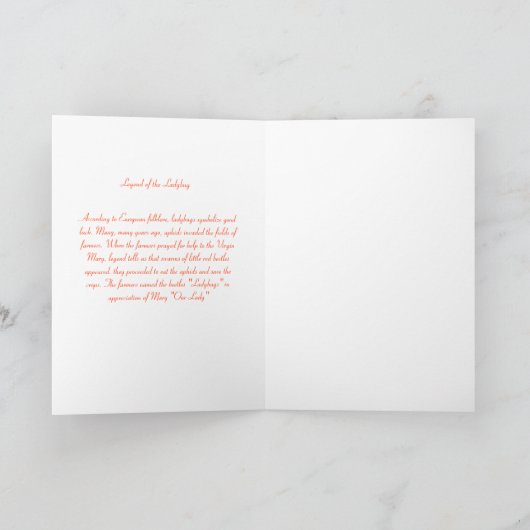 Legend of the Ladybug
According to European folklore, ladybugs symbolize good
luck. Many, many years ago, aphids invaded the fields of
farmers. When the farmers prayed for help to the Virgin
Mary, legend tells us that swarms of little red beetles
appeared, they proceeded to eat the aphids and save the
crops. The farmers named the beetles "Ladybugs" in
appreciation of Mary "Our Lady"